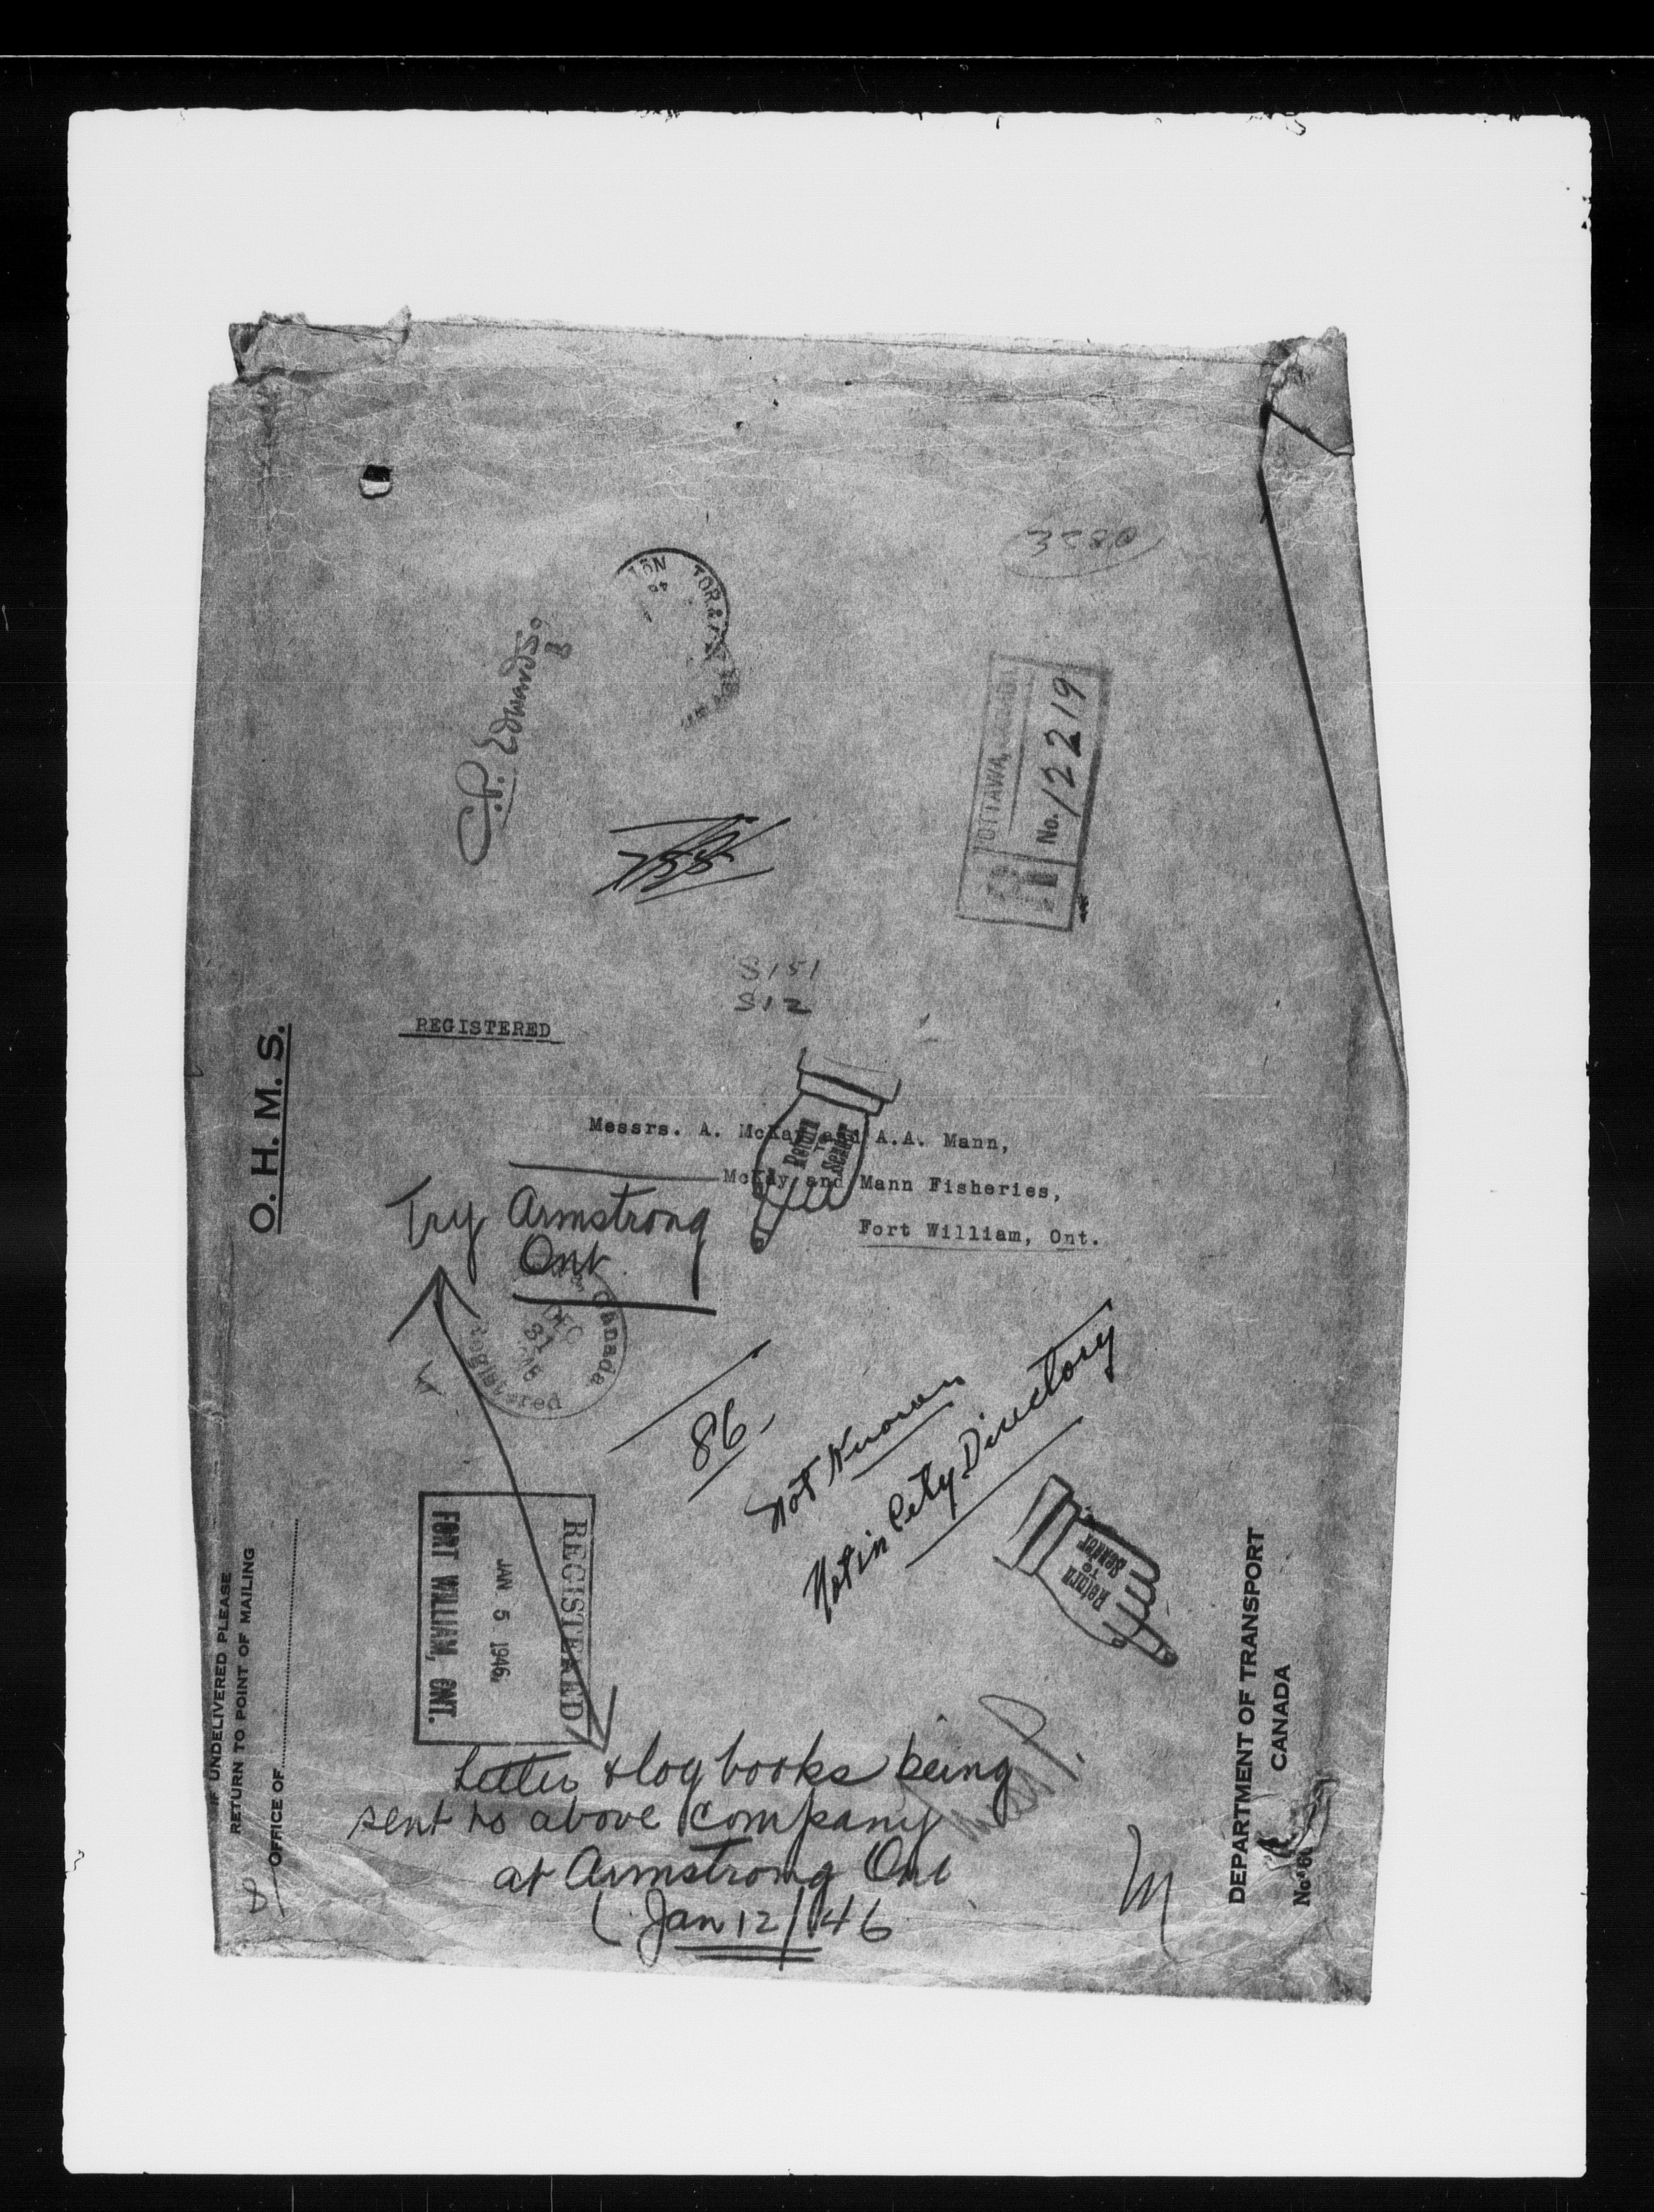 3280
TOR &
C.P. Edwards
OTTAWA,
No. 12219
755
S151
S12
O. H. M. S.
REGISTERED
Messrs. A. McKay and A.A. Mann,
McKay and Mann Fisheries,
Fort William, Ont.
Return
To
Sender
Try Armstrong
Ont
Canada
DEC
31
Registered
86
Not Known
Not in City Directory
Return
To
Sender
REGISTERED
JAN 5 1946
FORT WILLIAM, ONT.
IF UNDELIVERED PLEASE
RETURN TO POINT OF MAILING
OFFICE OF
DEPARTMENT OF TRANSPORT
CANADA
Letter & log books being
sent to above company
at Armstrong Ont
(Jan 12/46
M